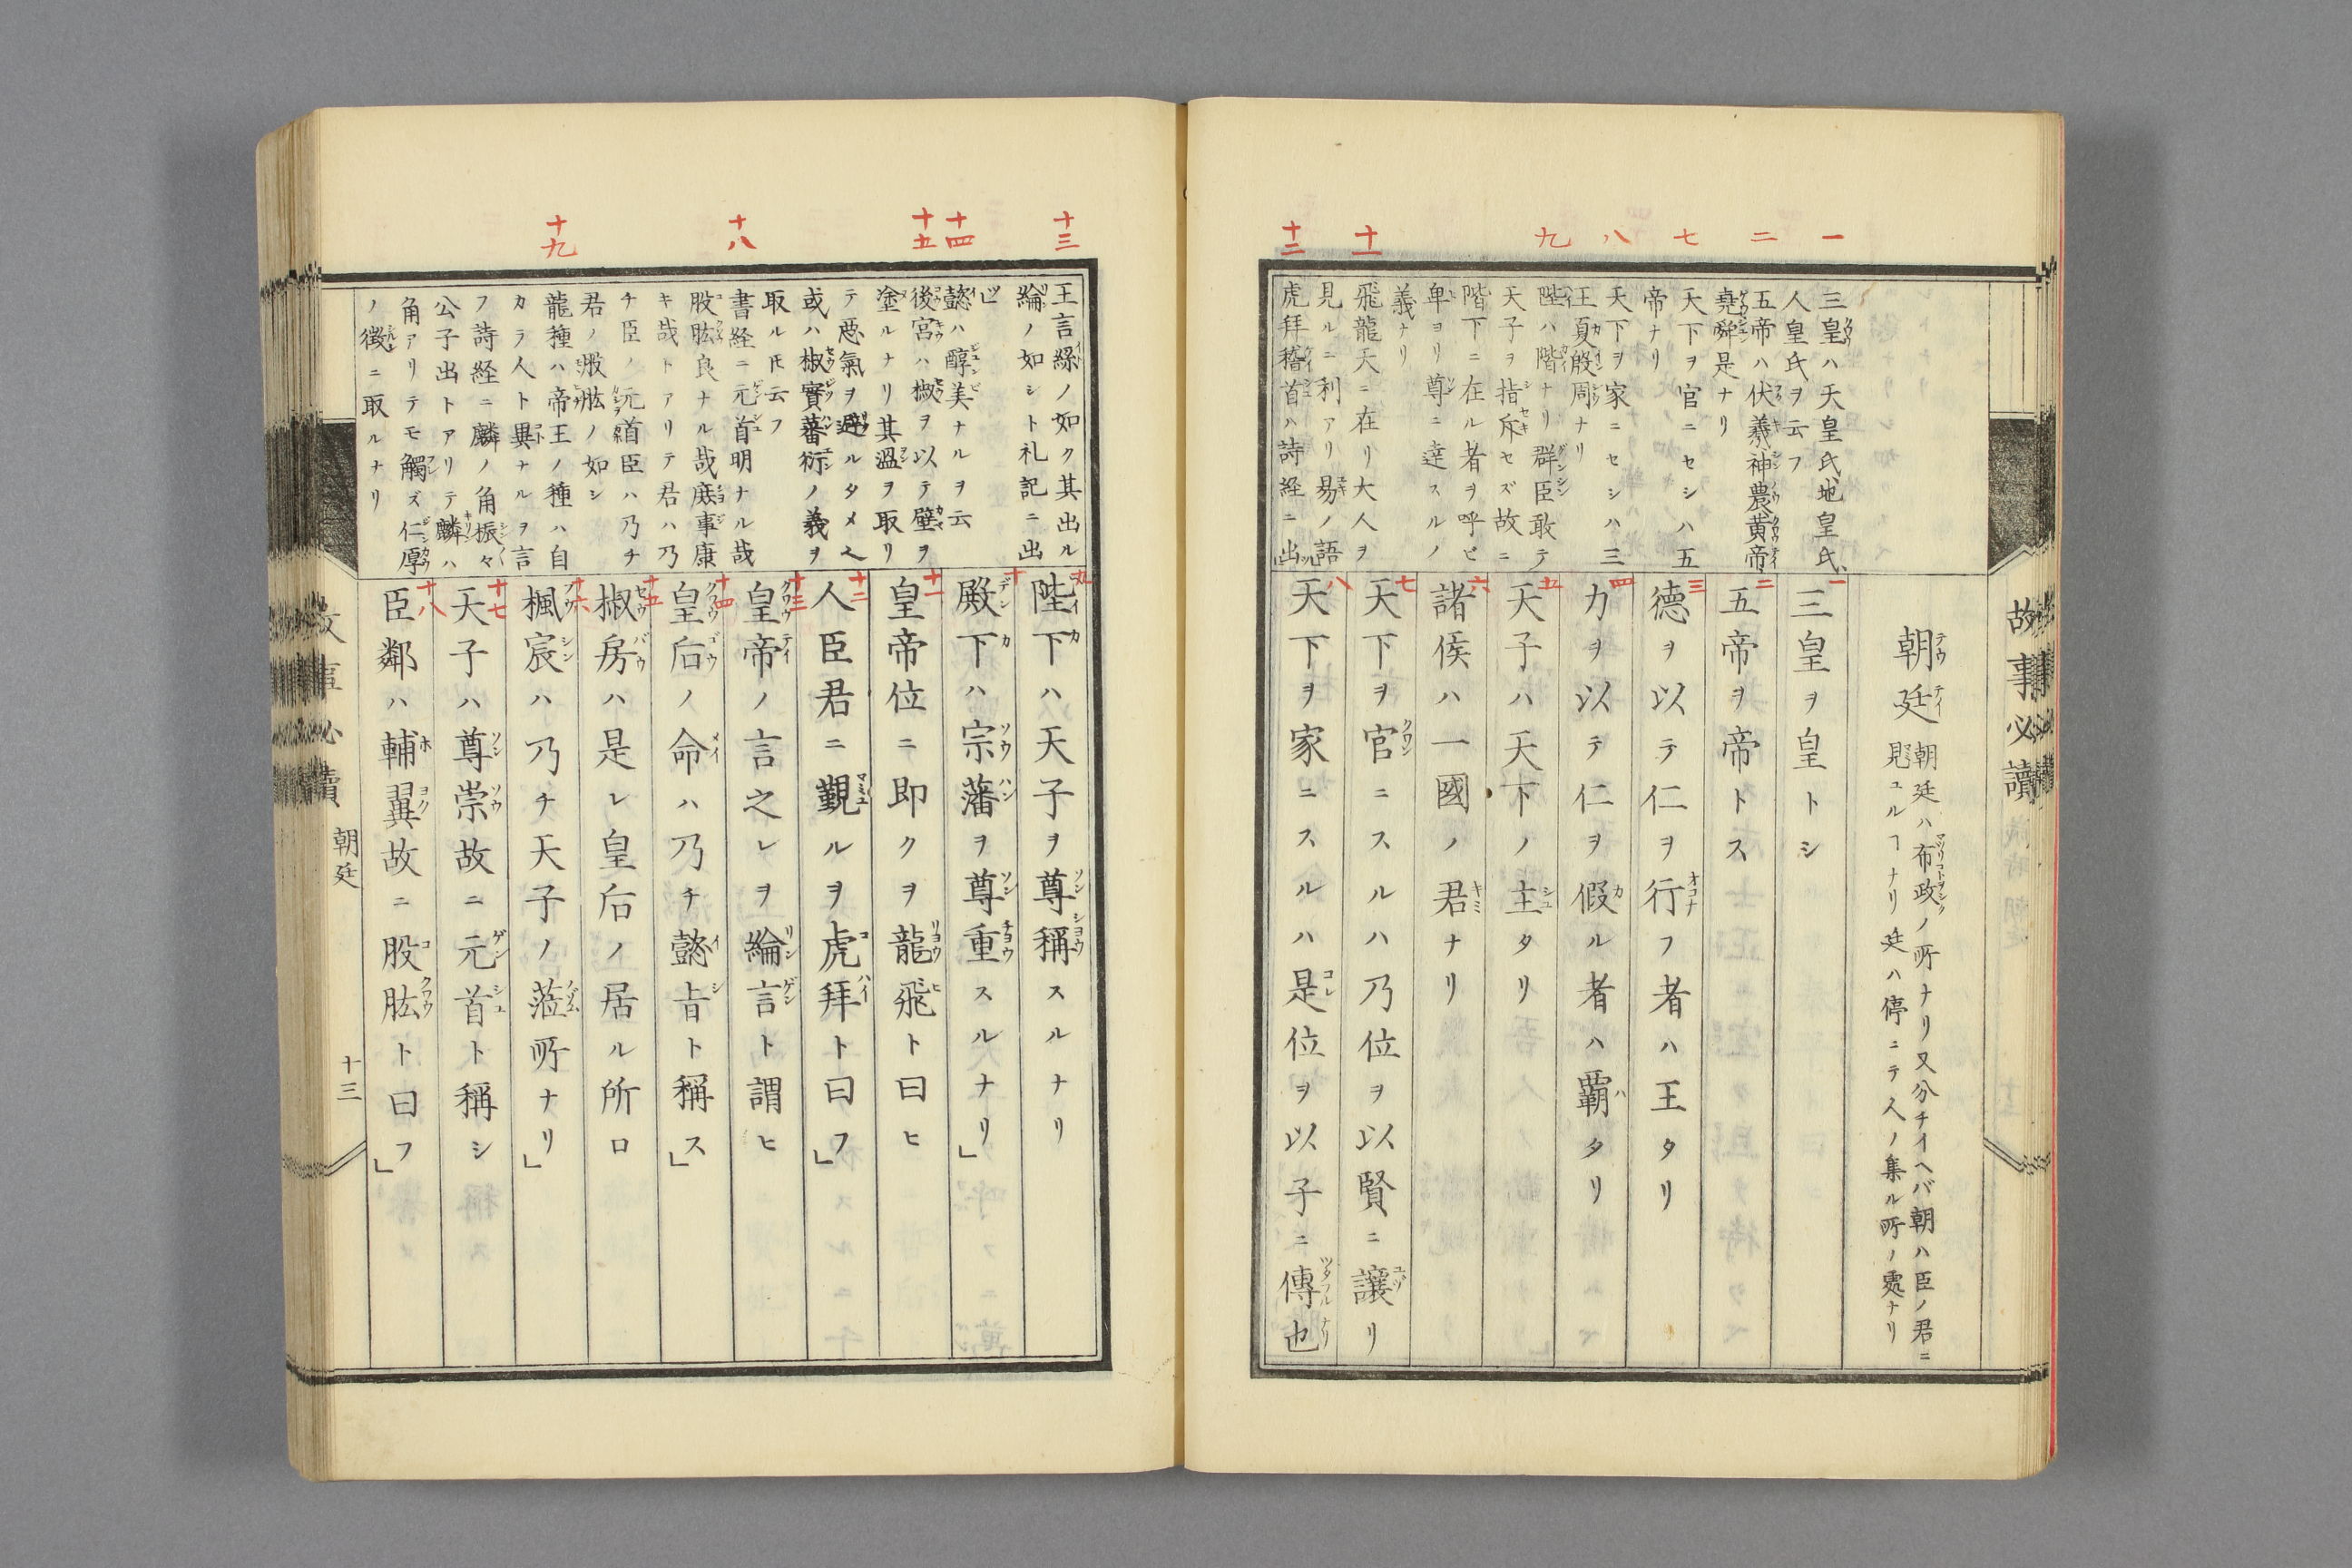 故事必讀
朝廷
朝廷ハ布政ノ所ナリ又分チイヘバ朝ハ臣ノ君ニ
見ユルヿナリ廷ハ停ニテ人ノ集ル所ノ處ナリ
一
二
七
八
九
十一
十二
三皇ハ天皇氏地皇氏
人皇氏ヲ云フ
五帝ハ伏羲神農黄帝
堯舜是ナリ
天下ヲ官ニセシハ五
帝ナリ
天下ヲ家ニセシハ三
王夏殷周ナリ
陛ハ階ナリ群臣敢テ
天子ヲ指斥セズ故ニ
階下ニ在ル者ヲ呼ビ
卑ヨリ尊ニ達スルノ
義ナリ
飛龍天ニ在リ大人ヲ
見ルニ利アリ易ノ語
虎拜稽首ハ詩経ニ出
一三皇ヲ皇トシ
二五帝ヲ帝トス
三德ヲ以テ仁ヲ行フ者ハ王タリ
四力ヲ以テ仁ヲ假ル者ハ覇タリ
五天子ハ天下ノ主タリ
六諸侯ハ一國ノ君ナリ
七天下ヲ官ニスルハ乃位ヲ以賢ニ讓リ
八天下ヲ家ニスルハ是位ヲ以子ニ傳也
十三
十四
十五
十八
十九
王言綟ノ如ク其出ル
綸ノ如シト礼記ニ出
ヅ
懿ハ醇美ナルヲ云
後宮ハ椒ヲ以テ壁ヲ
塗ルナリ其溫ヲ取リ
テ惡氣ヲ避ルタメ又
或ハ椒實蕃衍ノ義ヲ
取ル𪜈云フ
書経ニ元首明ナル哉
股肱良ナル哉庶事康
キ哉トアリテ君ハ乃
チ臣ノ元首臣ハ乃チ
君ノ股肱ノ如シ
龍種ハ帝王ノ種ハ自
カラ人ト異ナルヲ言
フ詩経ニ麟ノ角振々
公子出トアリテ麟ハ
角アリテモ觸ズ仁厚
ノ徴ニ取ルナリ
九陛下ハ天子ヲ尊稱スルナリ
十殿下ハ宗藩ヲ尊重スルナリ」
十一皇帝位ニ即クヲ龍飛ト曰ヒ
十二人臣君ニ覲ルヲ虎拜ト曰フ」
十三皇帝ノ言之レヲ綸言ト謂ヒ
十四皇后ノ命ハ乃チ懿旨ト稱ス」
十五椒房ハ是レ皇后ノ居ル所ロ
十六楓宸ハ乃チ天子ノ蒞所ナリ」
十七天子ハ尊崇故ニ元首ト稱シ
十八臣鄰ハ輔翼故ニ股肱ト曰フ」
故事必讀
朝廷
十三